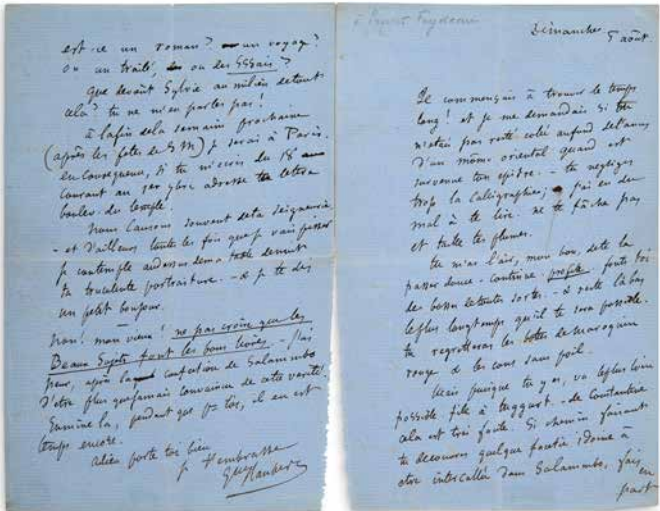 est-ce un roman ? un voyage ?
ou un traité, ou des Essais ?
que devient Sylvie au milieu de tout
cela ? tu ne m'en parles pas !
à la fin de la semaine prochaine
(après les fêtes de S. M) je serai à Paris.
en conséquence, si tu m'écris du 18
courant au 1er 7bre adresse ta lettre
boulev. du temple.
Nous Causons souvent de ta seigneurie
- et d'ailleurs toutes les fois que je vais pisser
je contemple au dessus de ma tête
ta truculente portraiture. - & je te dis
un petit bonjour.
Non ! mon vieux ! ne pas croire que les
Beaux Sujets font les bons livres. - J'ai
peur, après la confection de Salammbô
d'être plus que jamais convaincu de cette vérité.
temps encore.
adieu porte toi bien
je t'embrasse
Gve Flaubert
à Ernest Feydeau
Dimanche.
5 août.
Je commençais à trouver le temps
long ! et je me demandais si tu
n'étais pas resté collé au fond de l'anus
d'un môme oriental quand est
survenue ton épître. - tu négliges
trop la Calligraphie; j'ai eu du
mal à te lire. ne te fâche pas
et taille tes plumes.
tu m'as l'air, mon bon, de te la
passer douce. - continue. profite. foute-toi
de bosses de toutes sortes. - & reste là bas
le plus longtemps qu'il te sera possible.
tu regretteras les bottes de maroquin
rouge & les cons sans poil.
Mais puisque tu y es, va le plus loin
possible file à tuggurt. - de Constantine
cela est très facile. Si chemin faisant
tu découvres quelque facétie, idoine à
être intercallée dans Salammbô, fais
en
part